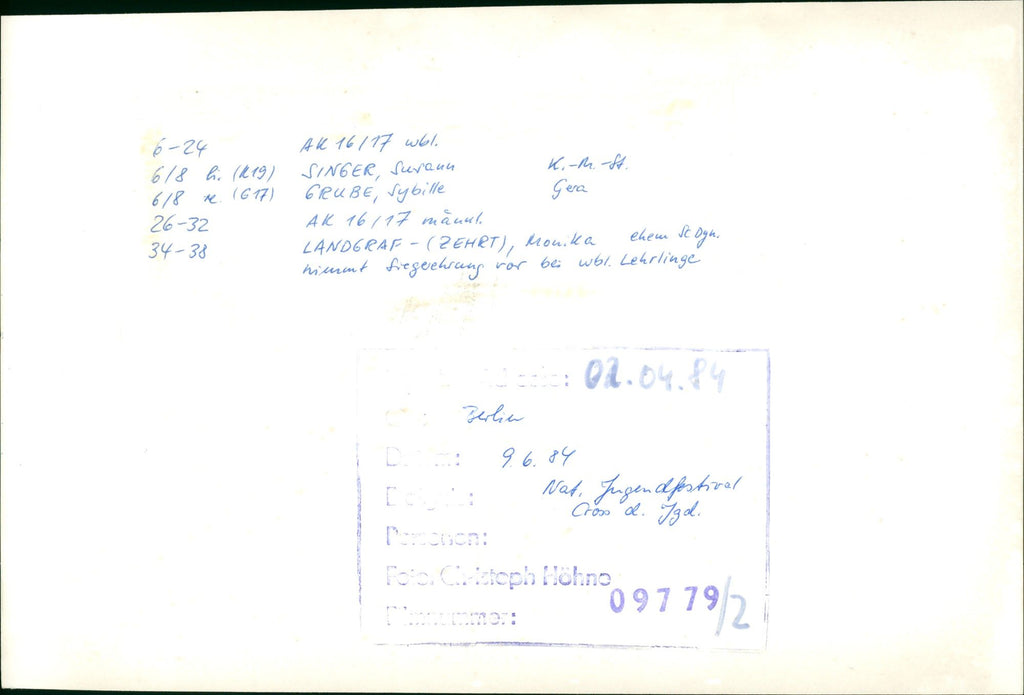 6-24 AK 16/17 wbl.
6/8 li. (K19) SINGER, Susann K.-M.-St.
6/8 re. (G17) GRUBE, Sybille Gera
26-32 AK 16/17 männl.
34-38 LANDGRAF-(ZEHRT), Monika ehem Sc Dyn.
nimmt Siegerehrung vor bei wbl. Lehrlinge
02.04.84
Berlin
Datum: 9.6.84
Nat. Jugendfestival
Cross d. Jgd.
Personen:
Foto: Christoph Höhne
Filmnummer: 09779/2